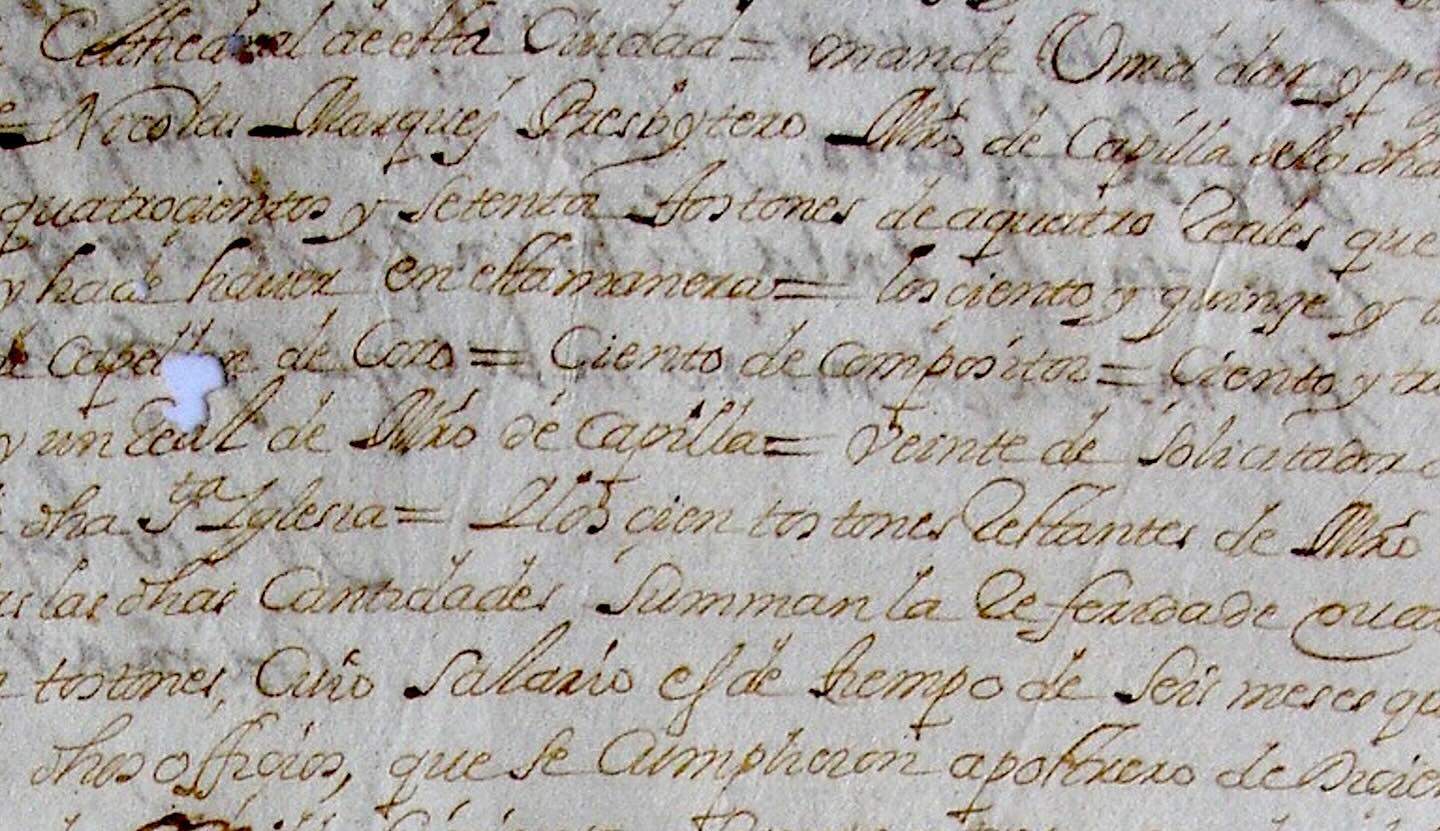 Cathedral de esta Ciudad = mande Vmd dar, y pa
Nicolas Marquez Presbytero Mro de Capilla de la dha
quatrocientos y setenta tostones de a quatro Reales que
y ha de hauer en esta manera = los ciento y quinse y
Capellan de Coro = Ciento de Compositor = Ciento y tr
y un Real de Mro de Capilla = Veinte de Solicitador
dha Sta Iglesia = Y los cien tostones Restantes de Mro
las dhas Cantidades Summan la Referida de quat
tostones, Cuio Salario es de tiempo de Seis meses q
dhos offiçios, que se Cumplieron a postrero de Dicie